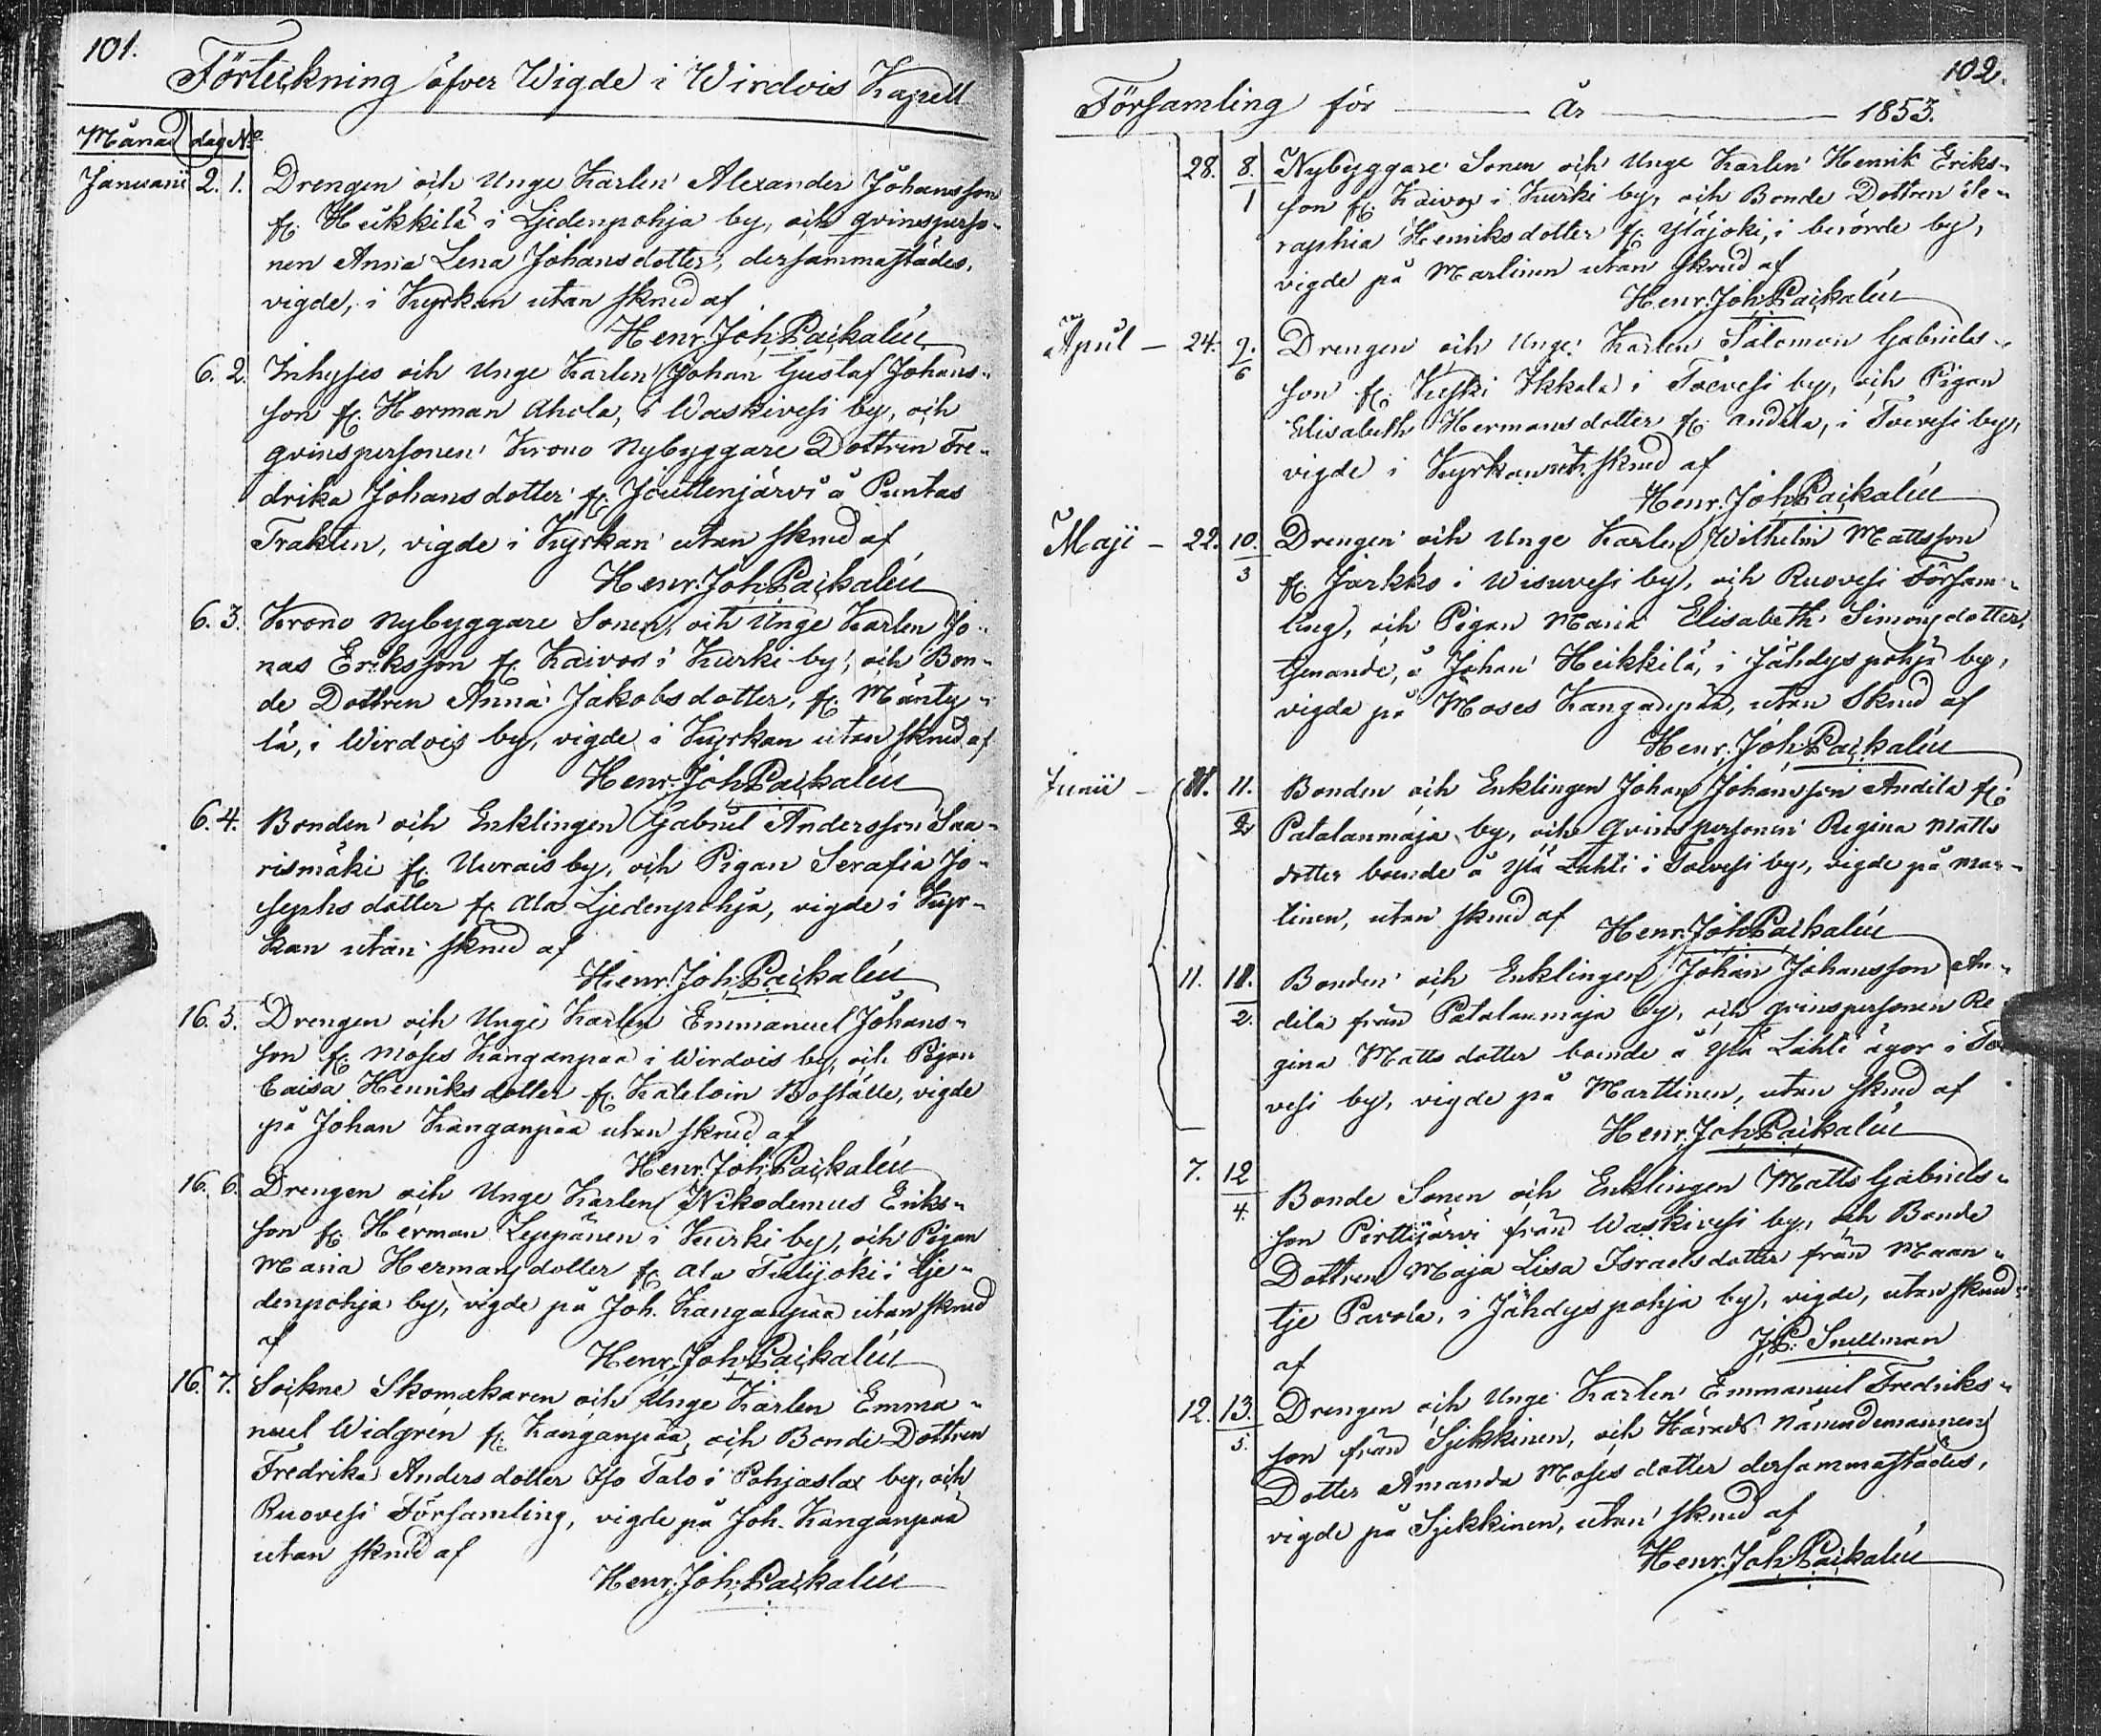 101.
Förteckning öfver Wigde i Wirdois Kapell
Månad dag No
Januarii 2. 1. Drengen och Unge Karlen Alexander Johansson
fr. Heikkilä i Ljedenpohja by, och qvinsperso-
nen Anna Lena Johansdotter, dersammastädes,
vigde, i Kyrkan utan skrud af
Henr. Joh. Paikalén
6. 2. Inhyses och Unge Karlen Johan Gustaf Johans-
son fr. Herman Ahola, i Waskivesi by, och
qvinspersonen Krono Nybyggare Dottren Fre-
drika Johansdotter fr. Jouttenjärvi å Puntas
Trakten, vigde i Kyrkan utan skrud af
Henr. Joh. Paikalén
6. 3. Krono Nybyggare Sonen, och Unge Karlen Jo-
nas Eriksson fr. Kaivos i Kurki by, och Bon-
de Dottren Anna Jakobsdotter, fr. Mänty-
lä, i Wirdois by, vigde i Kyrkan utan skrud af
Henr. Joh. Paikalén
6. 4. Bonden och Enklingen Gabriel Andersson Saa-
rismäki fr. Uurais by, och Pigan Serafia Jo-
sephsdotter fr. Ala Ljedenpohja, vigde i Kyr-
kan utan skrud af
Henr. Joh. Paikalén
16. 5. Drengen och Unge Karlen Emmanuel Johans-
son fr. Moses Kanganpää i Wirdois by, och Pigan
Caisa Henriksdotter fr. Boställe, vigde
på Johan Kanganpää utan skrud af
Henr. Joh. Paikalén
16. 6. Drengen och Unge Karlen Nikodemus Eriks-
son fr. Herman Leppänen i Kurki by, och Pigan
Maria Hermansdotter fr. Ala Tulijoki i Lje-
denpohja by, vigde på Joh. Kanganpää utan skrud
af
Henr. Joh. Paikalén
16. 7. Sockne Skomakaren och Unge Karlen Emma-
nuel Widgrén fr. Kanganpää, och Bonde Dottren
Fredrika Andersdotter Iso Talo i Pohjaslax by, och
Ruovesi Församling, vigde på Joh. Kanganpää
utan skrud af
Henr. Joh. Paikalén
102.
Församling för År 1853.
28. 8. Nybyggare Sonen och Unge Karlen Henrik Eriks-
1 son fr. Kaivos i Kurki by, och Bonde Dottren Se-
raphia Henriksdotter fr. Yläjoki, i berörde by,
vigde på Martinen utan skrud af
Henr. Joh. Paikalén
April — 24. 9. Drengen och Unge Karlen Salomon Gabriels-
6 son fr. Keski Ikkala i Toevesi by, och Pigan
Elisabeth Hermansdotter fr. Andila, i Toevesi by,
vigde i Kyrkan ut. skrud af
Henr. Joh. Paikalén
Maji — 22. 10. Drengen och Unge Karlen Wilhelm Mattsson
3 fr. Jarkko i Wisuvesi by, och Ruovesi Försam-
ling, och Pigan Maria Elisabeth Simonsdotter,
tjenande, å Johan Heikkilä, i Jähdyspohja by,
vigda på Moses Kanganpää, utan Skrud af
Henr. Joh. Paikalén
Junii — 11. 11. Bonden och Enklingen Johan Johansson Andila fr.
2 Patalanmaja by, och Qvinspersonen Regina Matts
dotter boende å Ylä Lahti i Toevesi by, vigde på Mar-
tinen, utan skrud af
Henr. Joh. Paikalén
11. 11. Bonden och Enklingen Johan Johansson An-
2. dila från Patalanmaja by, och qvinspersonen Re-
gina Mattsdotter boende å Ylä Lahti ägor i Toe
vesi by, vigde på Marttinen, utan skrud af
Henr. Joh. Paikalén
7. 12 Bonde Sonen och Enklingen Matts Gabriels-
4. son Pirttijärvi från Waskivesi by, och Bonde
Dottren Maja Lisa Israelsdotter från Maan-
tje Pavola, i Jähdyspohja by, vigde, utan skrud
af
J.P. Snellman
12. 13. Drengen och Unge Karlen Emmanuel Fredriks-
5. son från Sjekkinen, och Härads Nämndemannens
Dotter Amanda Mosesdotter dersammastädes,
vigde på Sjekkinen, utan skrud af
Henr. Joh. Paikalén